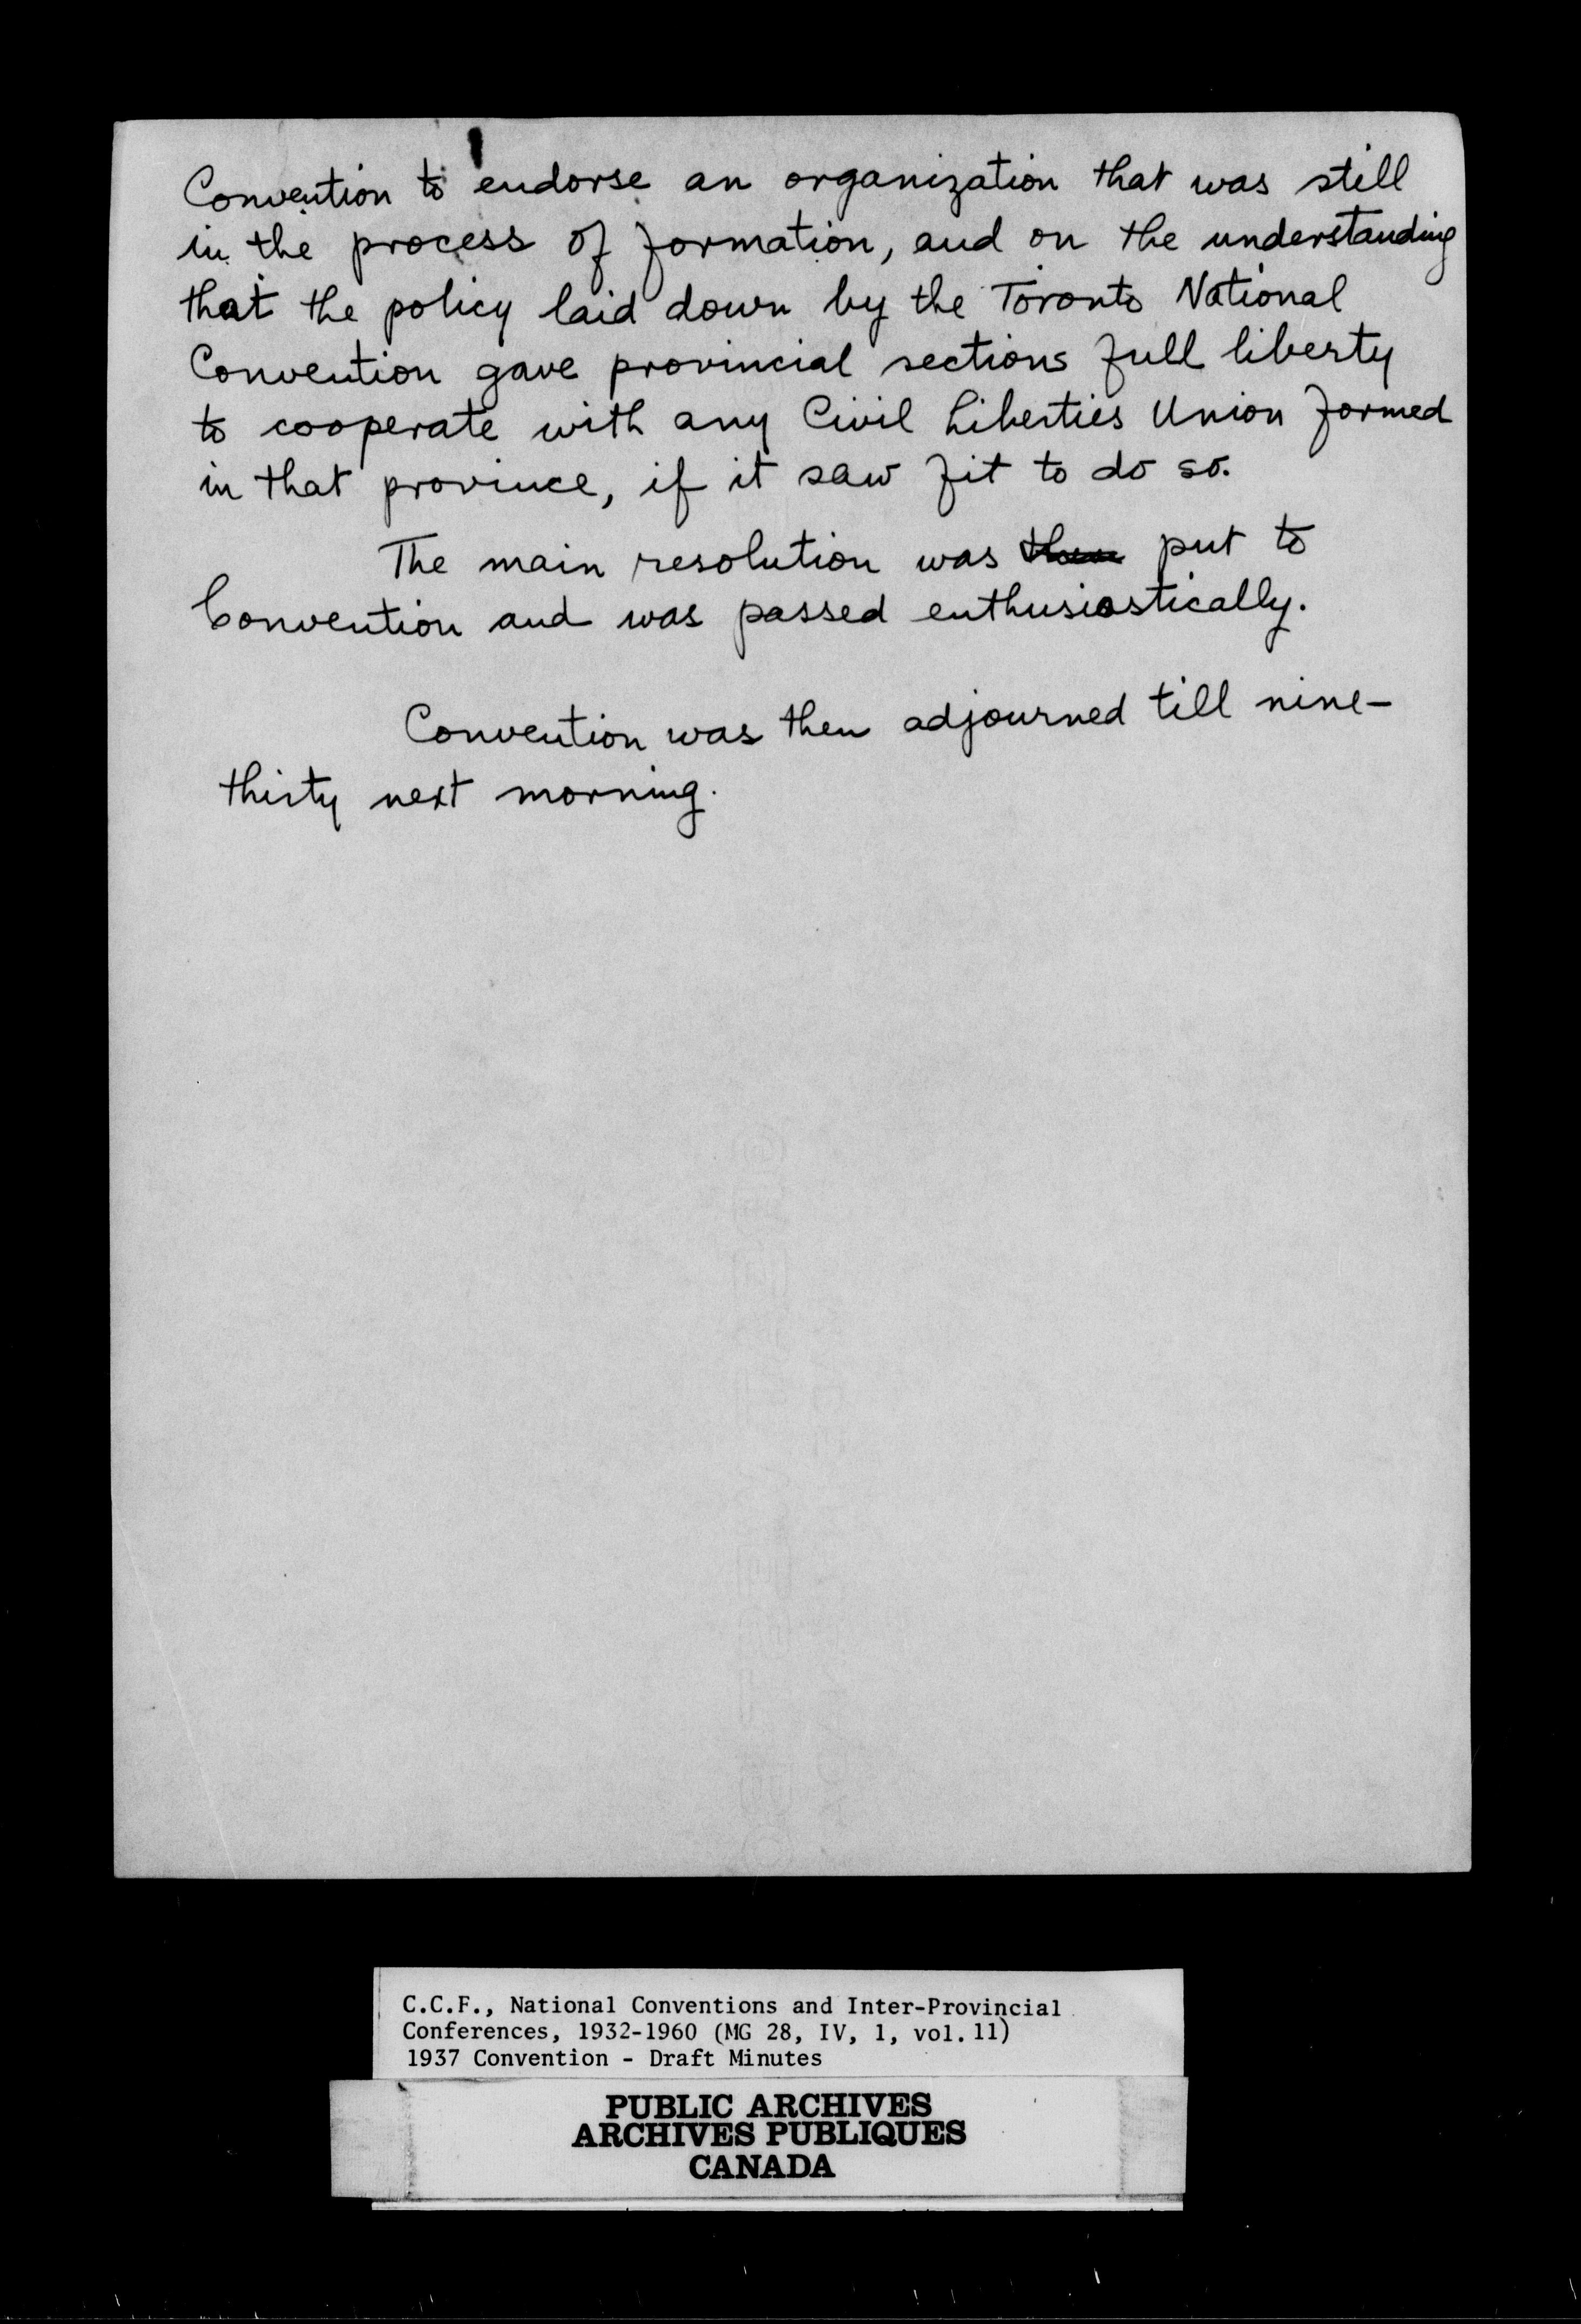 Convention to endorse an organization that was still
in the process of formation, and on the understanding
that the policy laid down by the Toronto National
Convention gave provincial sections full liberty
to cooperate with any Civil Liberties Union formed
in that province, if it saw fit to do so.
The main resolution was then put to
Convention and was passed enthusiastically.
Convention was then adjourned till nine-
thirty next morning.
C.C.F., National Conventions and Inter-Provincial
Conferences, 1932-1960 (MG 28, IV, 1, vol. 11)
1937 Convention - Draft Minutes
PUBLIC ARCHIVES
ARCHIVES PUBLIQUES
CANADA